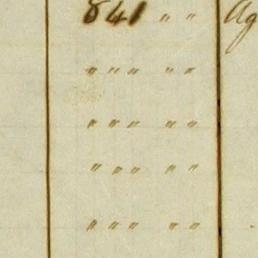 841 " " Ag
" " " " "
" " " " "
" " " " "
" " " " "